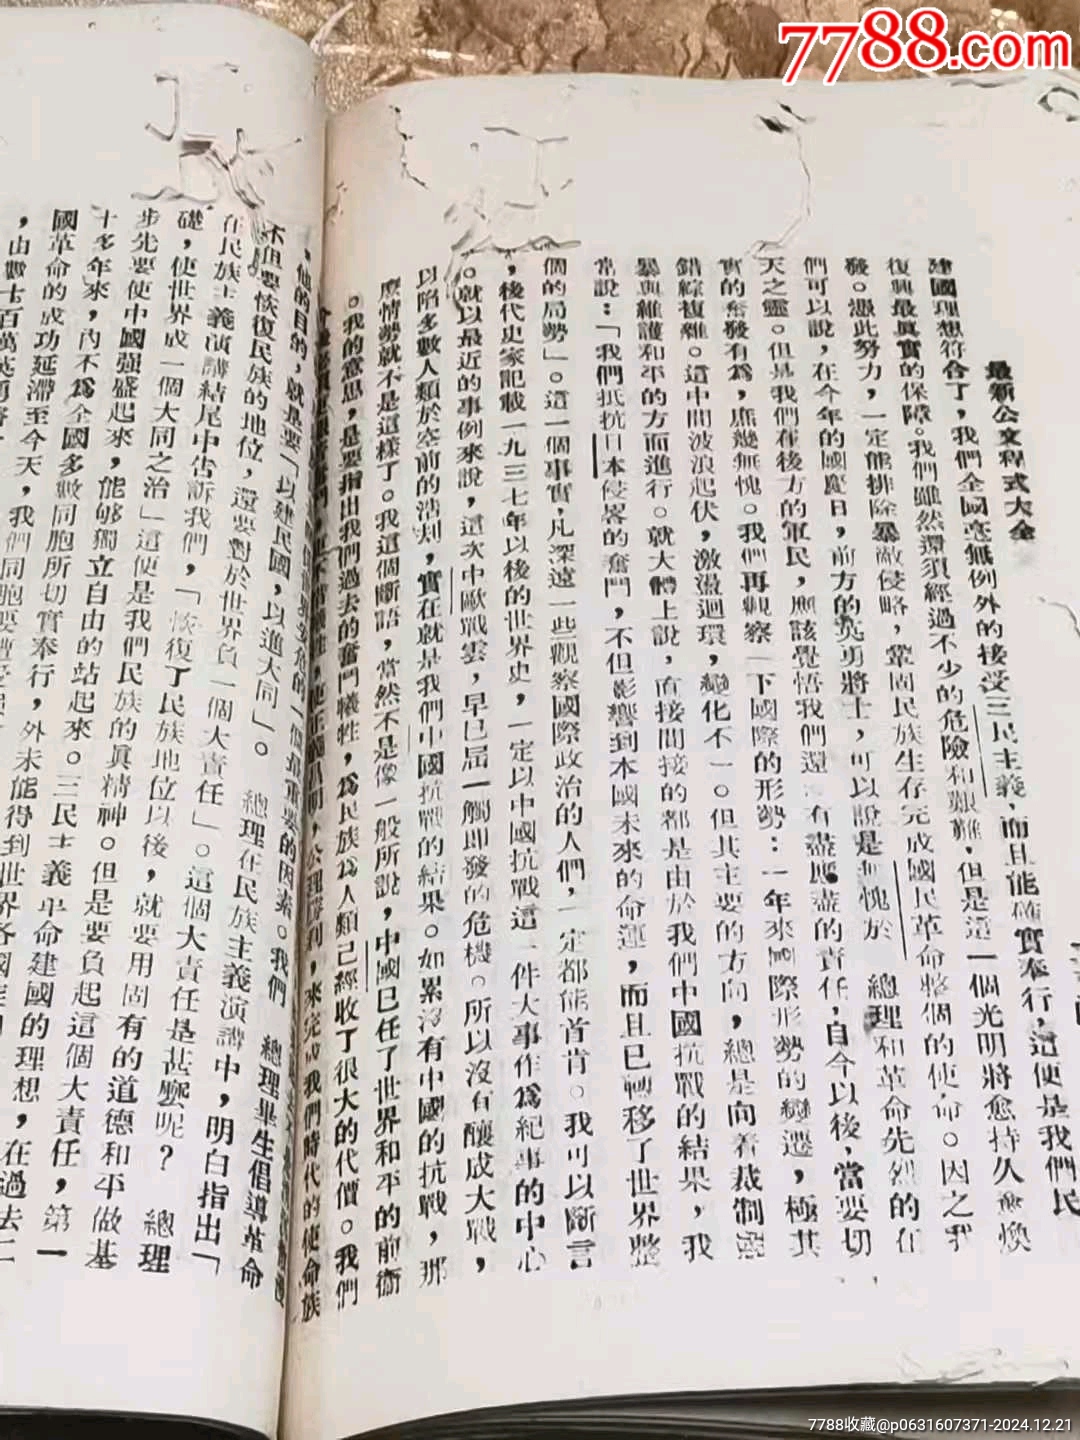 7788.com
最新公文程式大全
建國理想符合了，我們全國毫無例外的接受三民主義，而且能確實奉行，這便是我們民
復興最真實的保障。我們雖然還須經過不少的危險和艱難，但是這一個光明將愈持久愈煥
發。憑此努力，一定能排除暴敵侵略，鞏固民族生存完成國民革命整個的使命。因之我
們可以說，在今年的國慶日，前方的英勇將士，可以說是無愧於　總理和革命先烈的在
天之靈。但是我們在後方的軍民，應該覺悟我們還沒有盡應盡的責任，自今以後，當要切
實的奮發有為，庶幾無愧。我們再觀察一下國際的形勢：一年來國際形勢的變遷，極其
錯綜複雜。這中間波浪起伏，激盪迴環，變化不一。但其主要的方向，總是向着裁制
暴與維護和平的方面進行。就大體上說，直接間接的都是由於我們中國抗戰的結果，我
常說：「我們抵抗日本侵畧的奮鬥，不但影響到本國未來的命運，而且已轉移了世界整
個的局勢」。這一個事實，凡深遠一些觀察國際政治的人們，一定都能首肯。我可以斷言
，後代史家記載一九三七年以後的世界史，一定以中國抗戰這一件大事作為紀事的中心
。就以最近的事例來說，這次中歐戰雲，早已局一觸即發的危機。所以沒有釀成大戰，
以陷多數人類於空前的浩劫，實在就是我們中國抗戰的結果。如累沒有中國的抗戰，那
麼情勢就不是這樣了。我這個斷語，當然不是像一般所說，中國已任了世界和平的前衛
。我的意思，是要指出我們過去的奮鬥犧牲，為民族為人類已經收了很大的代價。我們
來完成我們時代的使命
的一個最重要的因素。我們
，他的目的，就是要「以建民國，以進大同」。　總理畢生倡導革命
不但要恢復民族的地位，還要對於世界負一個大責任」。　總理在民族主義演講中，明白指出「
在民族主義演講結尾中告訴我們，「恢復了民族地位以後，就要用固有的道德和平做基
礎，使世界成一個大同之治」這便是我們民族的真精神。但是要負起這個大責任，第一
步先要使中國强盛起來，能夠獨立自由的站起來。三民主義革命建國的理想，在過去二
十多年來，內不為全國多數同胞所切實奉行，外未能得到世界各國
國革命的成功延滯至今天，我們同胞要
，由數十百萬英勇
7788收藏@p0631607371-2024.12.21